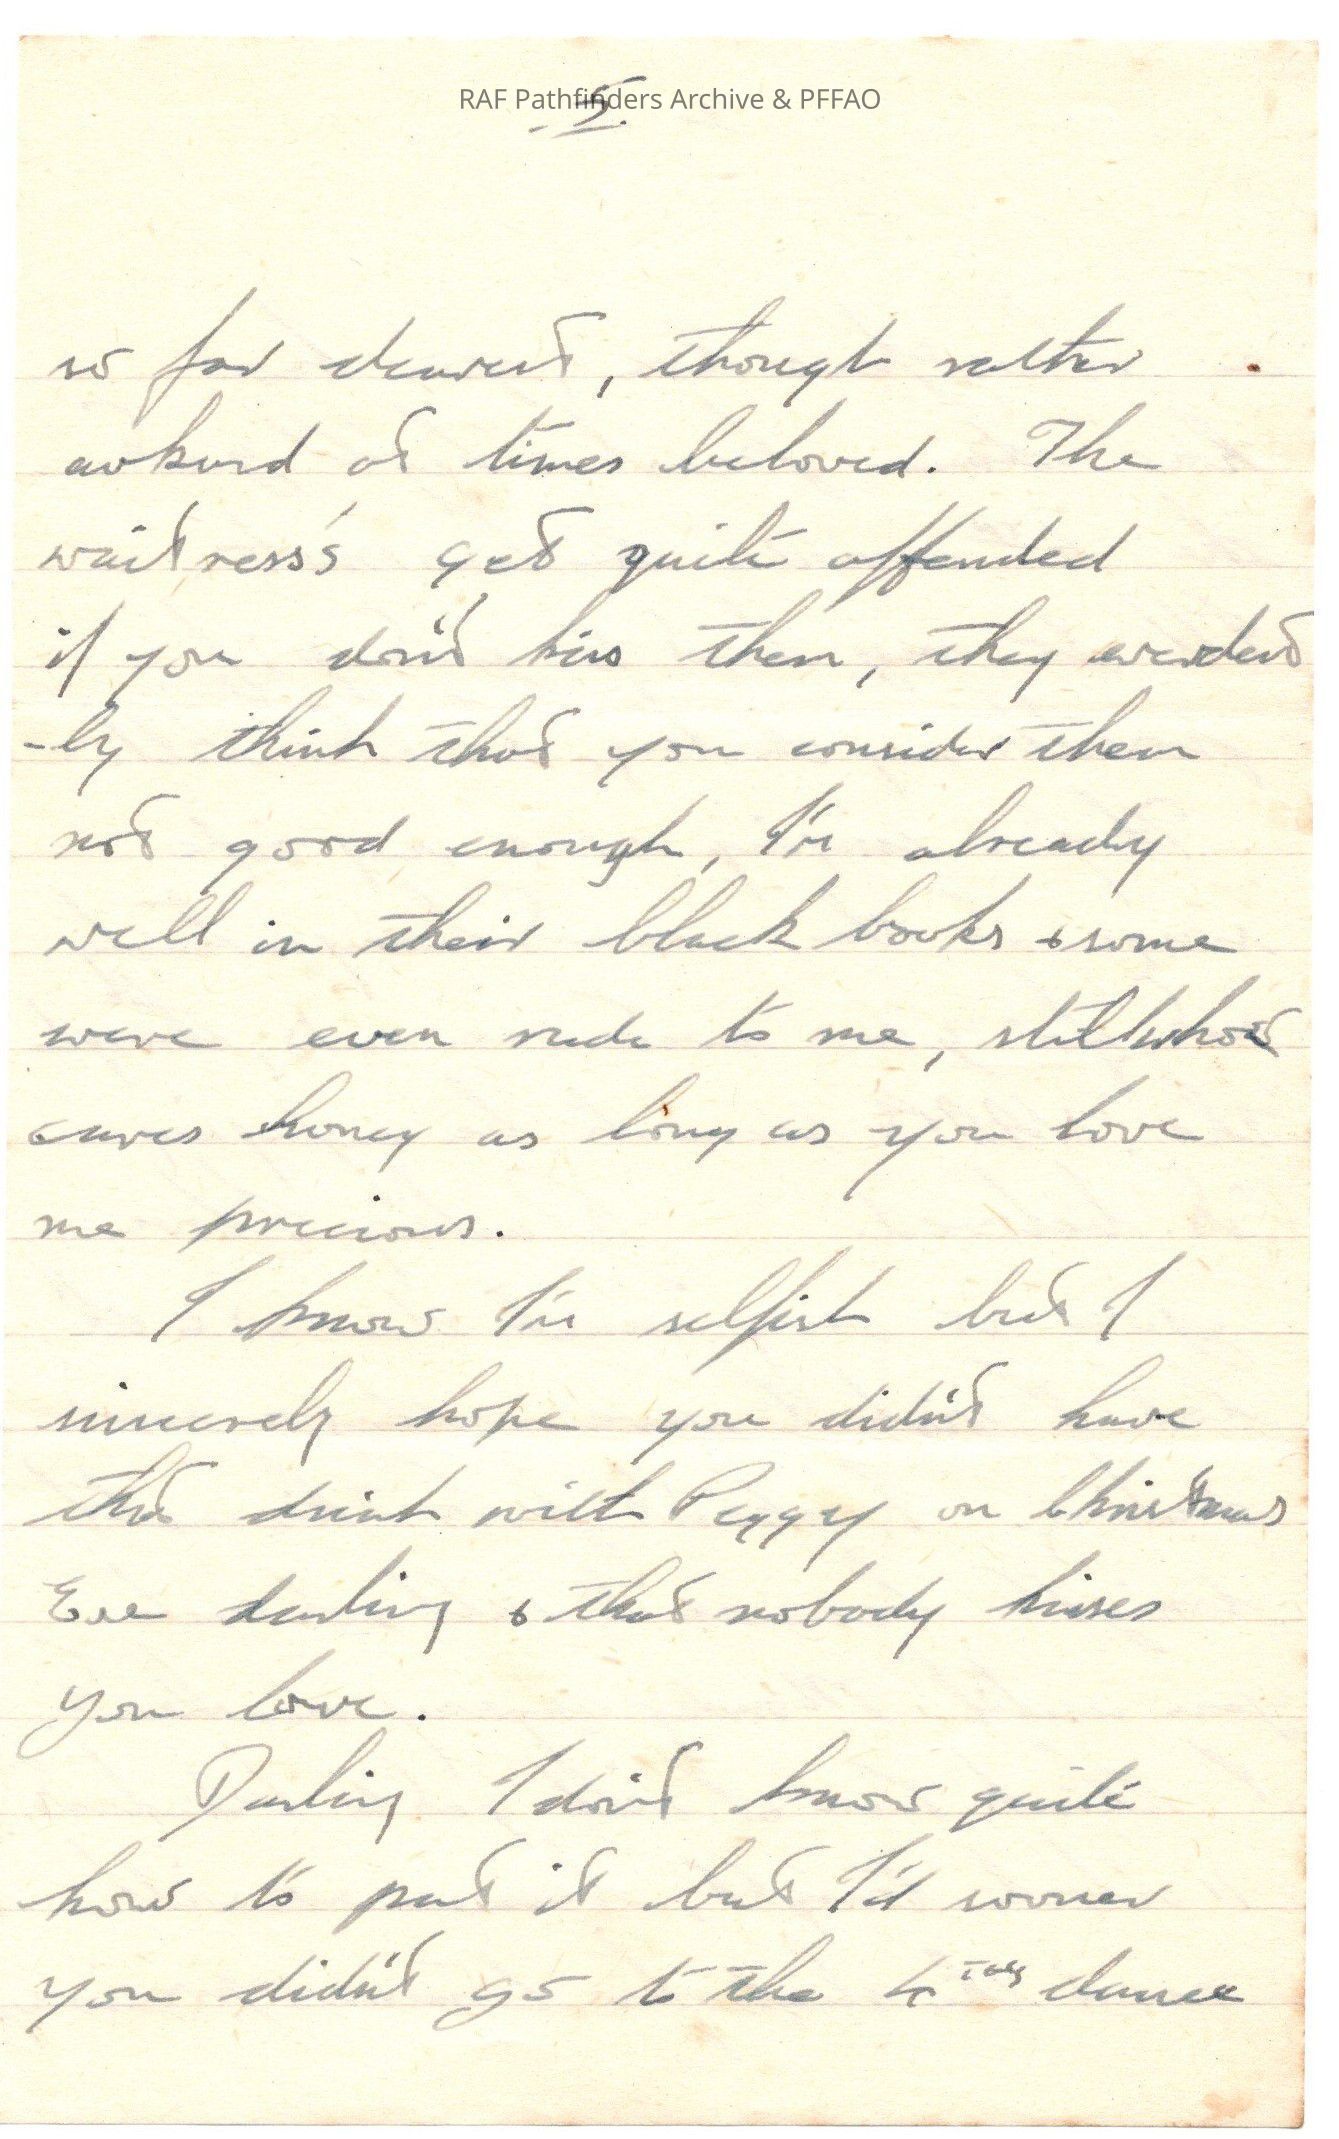 RAF Pathfinders Archive & PFFAO
- 5.
so far dearest, though rather
awkurd at times beloved. The
waitress's get quite offended
if you don't kiss them, they evident
-ly think that you consider them
not good enough, I'm already
well in their black books & some
were even rude to me, still who
cares honey as long as you love
me precious.
I know I'm selfish but I
sincerely hope you didn't have
that drink with Peggy on Christmas
Eve darling & that nobody kisses
you love.
Darling I don't know quite
how to put it but I'd sooner
you didn't go to the dance